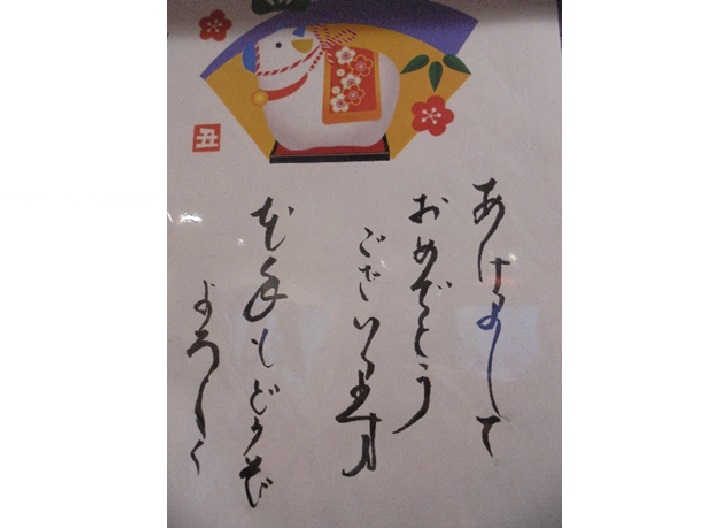 あけまして
おめでとう
ございます
本年もどうぞ
よろしく
丑